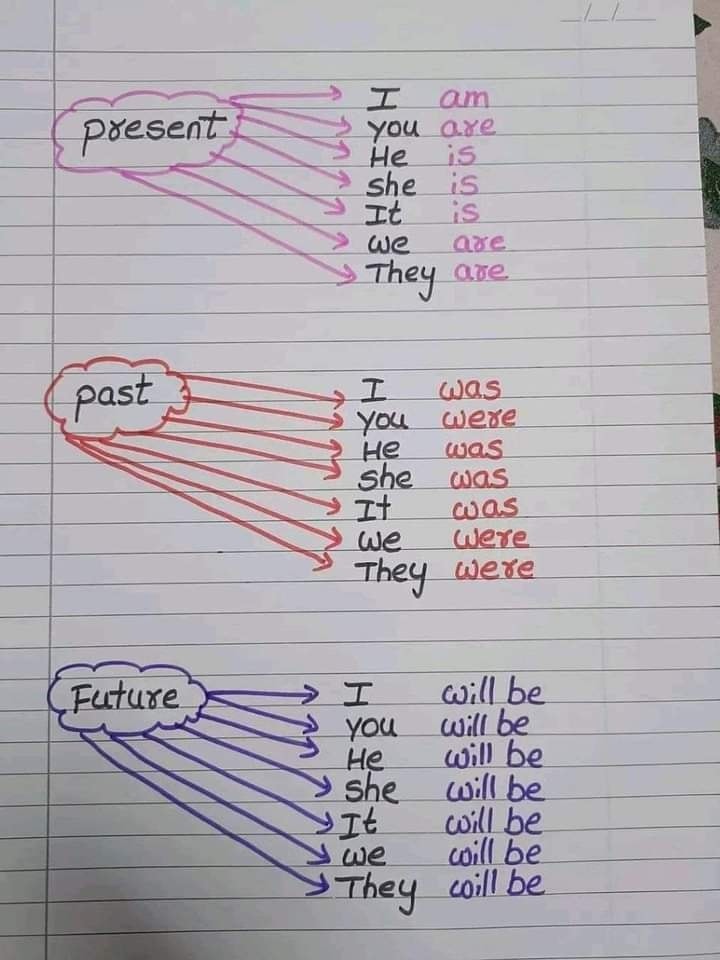 _/_/__
present
I am
you are
He is
she is
It is
we are
They are
past
I was
you were
He was
she was
It was
we were
They were
Future
I will be
you will be
He will be
she will be
It will be
we will be
They will be